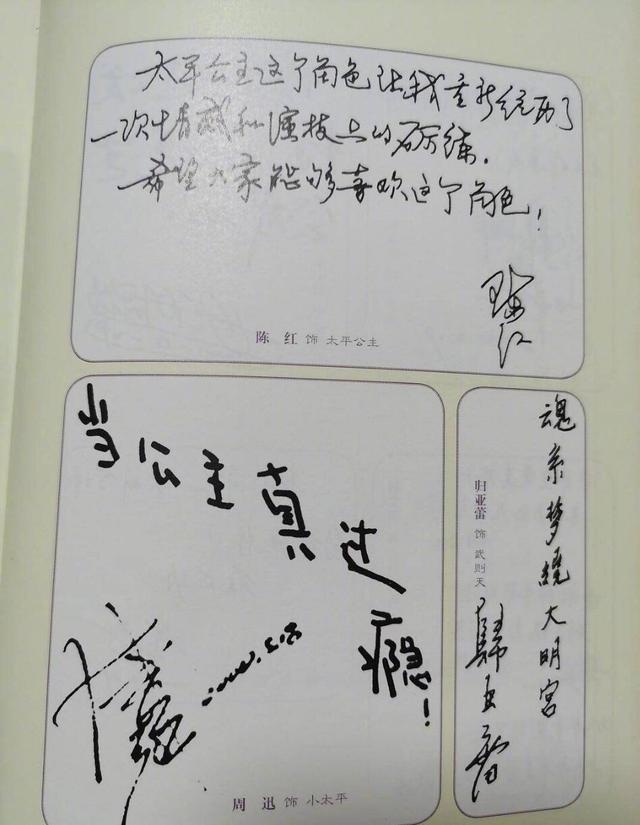 太平公主这个角色让我重新经历了
一次情感和演技上的砺练。
希望大家能够喜欢这个角色！
陈红
陈 红 饰 太平公主
当公主真过瘾！
周 迅 饰 小太平
魂系梦绕大明宫
归亚蕾 饰 武则天
歸亚蕾